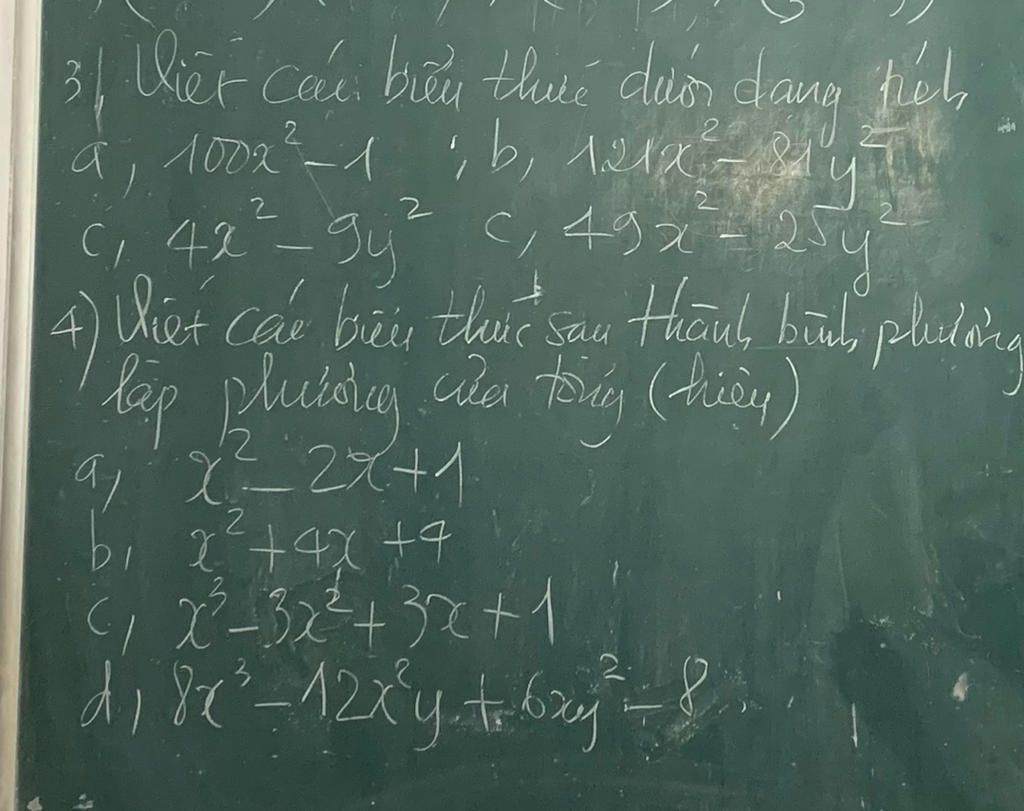 3) Viết các biểu thức dưới dạng tích
a, 100x² - 1 ; b, 121x² - 81y²
c, 4x² - 9y² c, 49x² - 25y²
4) Viết các biểu thức sau thành bình phương
lập phương của tổng (hiệu)
a, x² - 2x + 1
b, x² + 4x + 4
c, x³ - 3x² + 3x + 1
d, 8x³ - 12x²y + 6xy² - 8